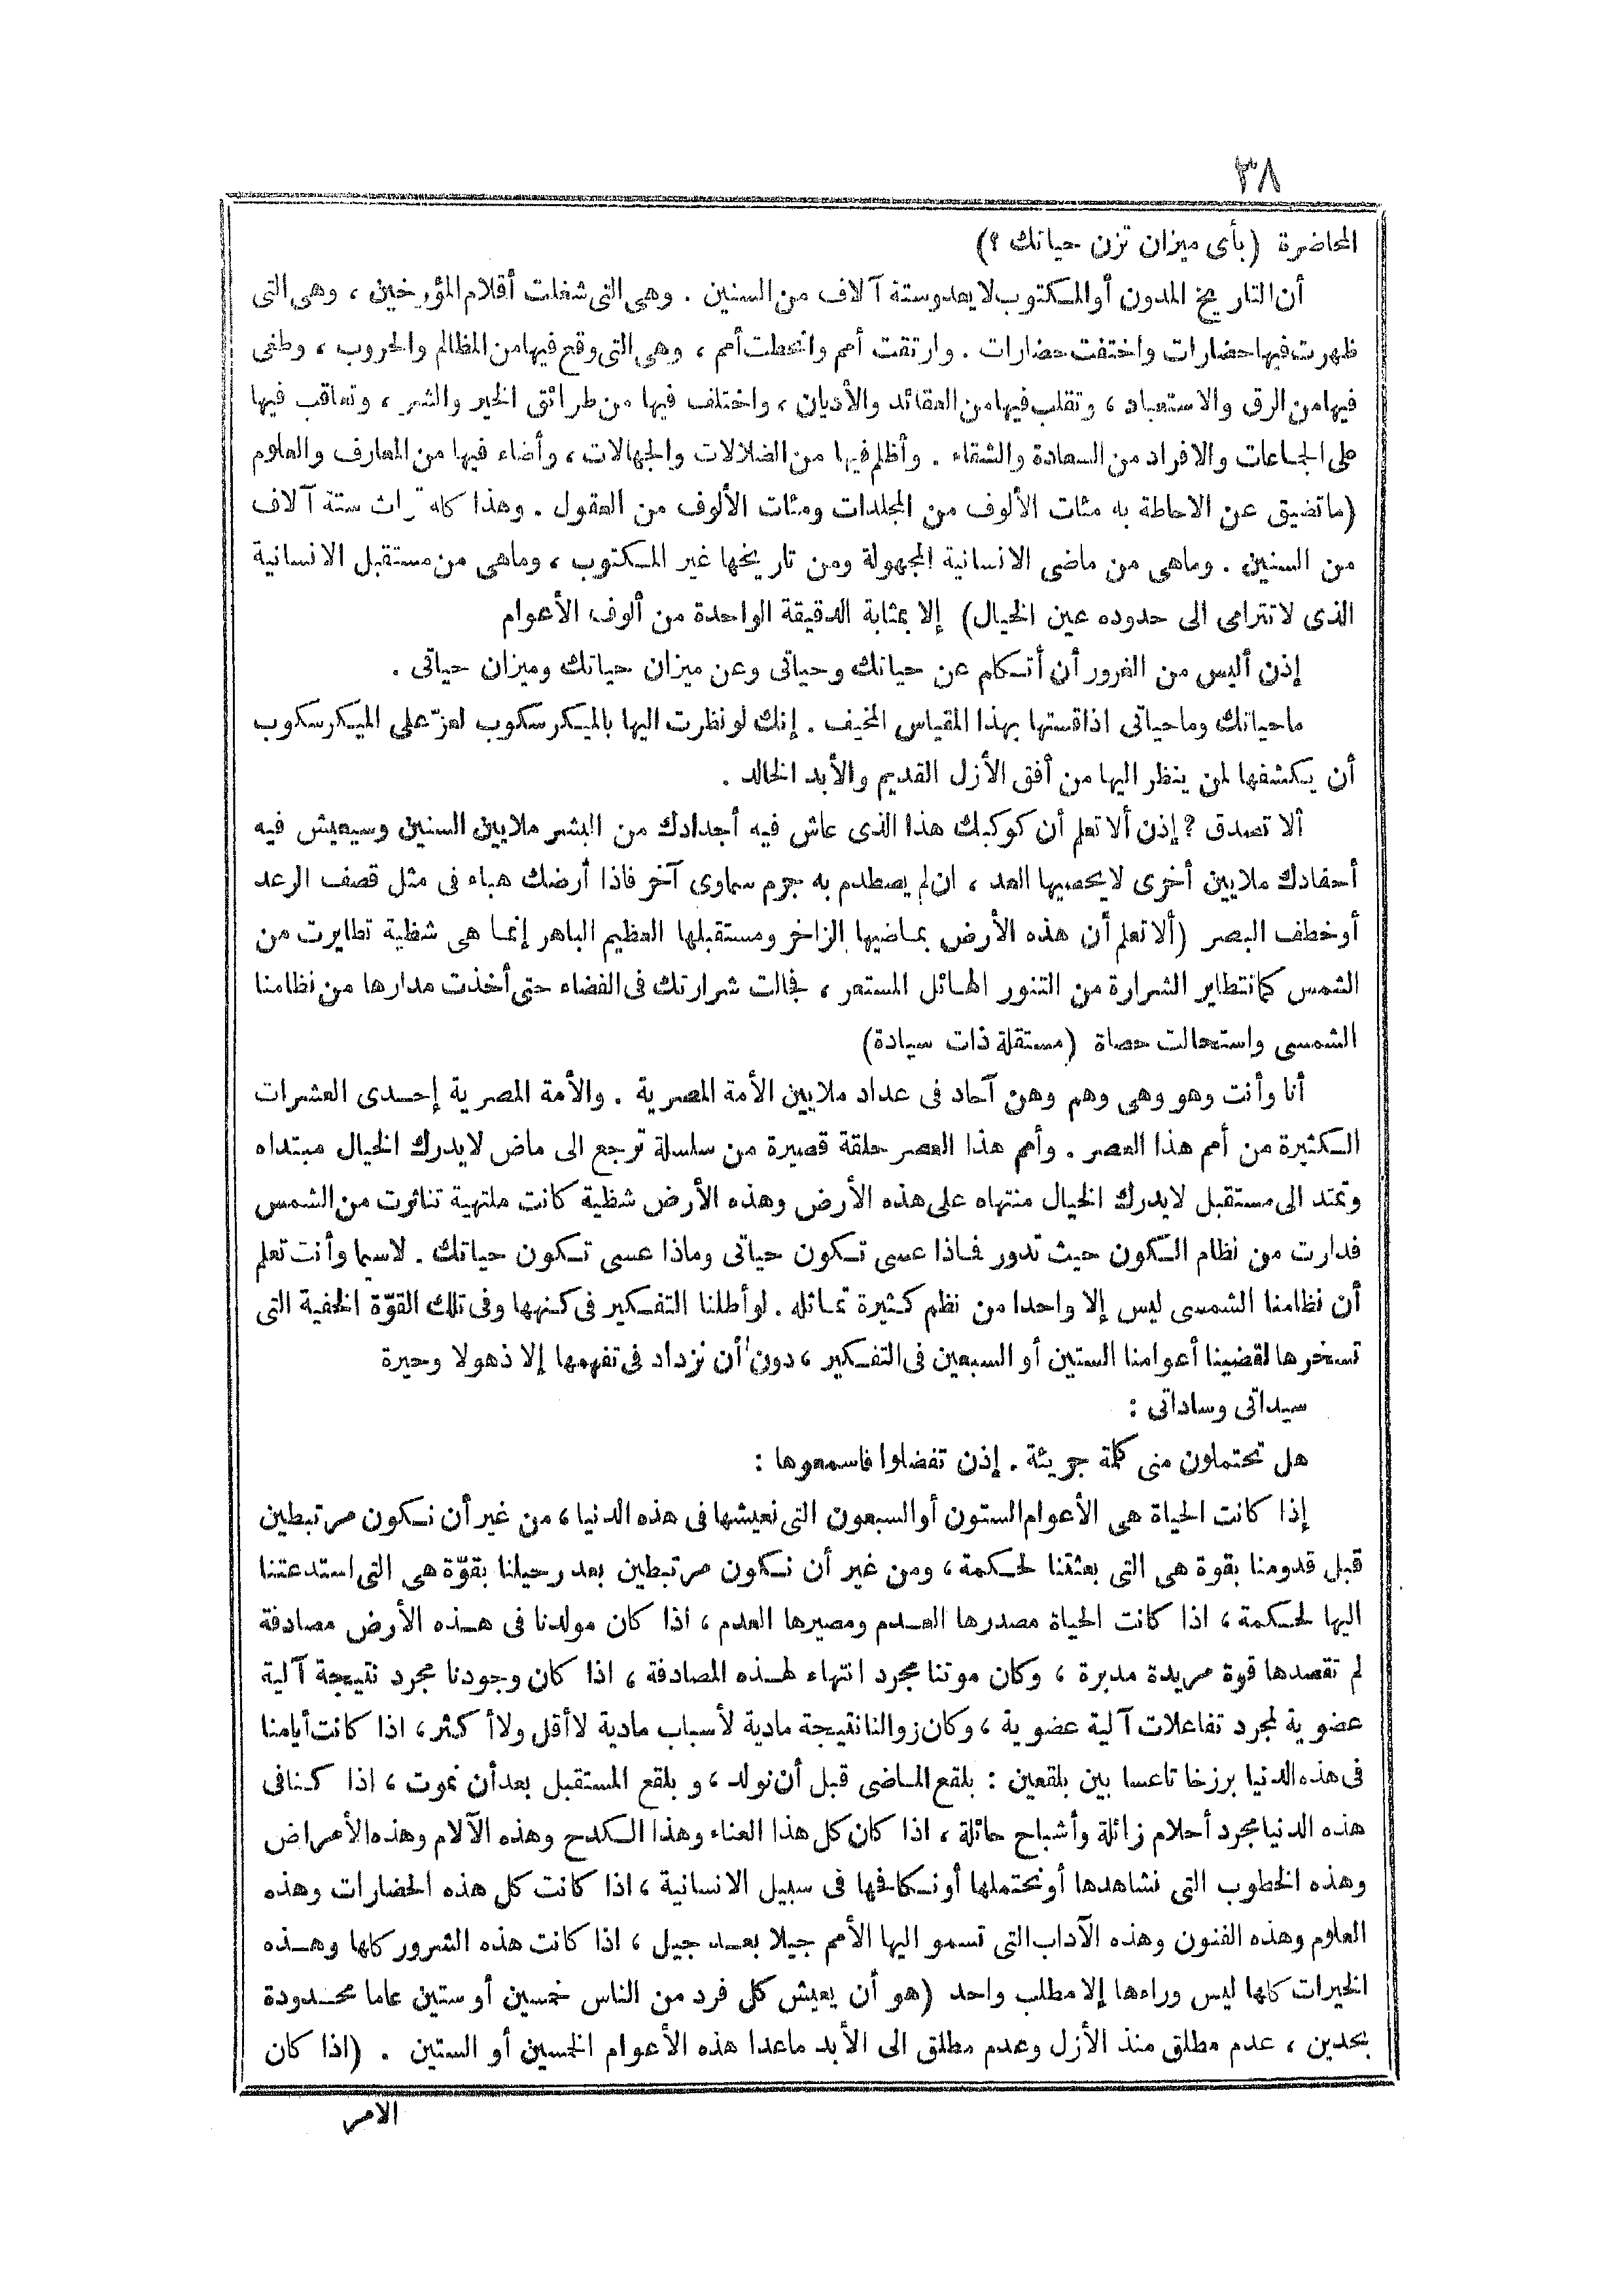 ٣٨
المحاضرة (بأى ميزان تزن حياتك ؟)
أن التاريخ المدون أو المكتوب لا يعدو ستة آلاف من السنين . وهى التى شغلت أقلام المؤرخين ، وهى التى
ظهرت فيها حضارات واختفت حضارات . وارتقت أمم وانحطت أمم ، وهى التى وقع فيها من المظالم والحروب ، وطغى
فيها من الرق والاستعباد ، وتقلب فيها من العقائد والأديان ، واختلف فيها من طرائق الخير والشر ، وتعاقب فيها
على الجماعات والافراد من السعادة والشقاء . وأظلم فيها من الضلالات والجهالات ، وأضاء فيها من المعارف والعلوم
(ما تضيق عن الاحاطة به مئات الألوف من المجلدات ومئات الألوف من العقول . وهذا كله تراث ستة آلاف
من السنين . وماهى من ماضى الانسانية المجهولة ومن تاريخها غير المكتوب ، وماهى من مستقبل الانسانية
الذى لا تترامى الى حدوده عين الخيال) إلا بمثابة الدقيقة الواحدة من ألوف الأعوام
إذن أليس من الغرور أن أتكلم عن حياتك وحياتى وعن ميزان حياتك وميزان حياتى .
ما حياتك وما حياتى اذا قستها بهذا المقياس المخيف . إنك لو نظرت اليها بالميكرسكوب لعزّ على الميكرسكوب
أن يكشفها لمن ينظر اليها من أفق الأزل القديم والأبد الخالد .
ألا تصدق ؟ إذن ألا تعلم أن كوكبك هذا الذى عاش فيه أجدادك من البشر ملايين السنين وسيعيش فيه
أحفادك ملايين أخرى لا يحصيها العد ، ان لم يصطدم به جرم سماوى آخر فاذا أرضك هباء فى مثل قصف الرعد
أو خطف البصر (ألا تعلم أن هذه الأرض بماضيها الزاخر ومستقبلها العظيم الباهر إنما هى شظية تطايرت من
الشمس كما تتطاير الشرارة من التنور الهائل المستعر ، فجالت شرارتك فى الفضاء حتى أخذت مدارها من نظامنا
الشمسى واستحالت حصاة (مستقلة ذات سيادة)
أنا وأنت وهو وهى وهم وهن آحاد فى عداد ملايين الأمة المصرية . والأمة المصرية إحدى العشرات
الكثيرة من أمم هذا العصر . وأمم هذا العصر حلقة قصيرة من سلسلة ترجع الى ماض لا يدرك الخيال مبتداه
وتمتد الى مستقبل لا يدرك الخيال منتهاه على هذه الأرض وهذه الأرض شظية كانت ملتهبة تناثرت من الشمس
فدارت من نظام الكون حيث تدور فماذا عسى تكون حياتى وماذا عسى تكون حياتك . لاسيما وأنت تعلم
أن نظامنا الشمسى ليس إلا واحدا من نظم كثيرة تماثله . لو أطلنا التفكير فى كنهها وفى تلك القوّة الخفية التى
تسخرها لقضينا أعوامنا الستين أو السبعين فى التفكير ، دون أن نزداد فى تفهمها إلا ذهولا وحيرة
سيداتى وساداتى :
هل تحتملون منى كلمة جريئة . إذن تفضلوا فاسمعوها :
إذا كانت الحياة هى الأعوام الستون أو السبعون التى نعيشها فى هذه الدنيا ، من غير أن نكون مرتبطين
قبل قدومنا بقوة هى التى بعثتنا لحكمة ، ومن غير أن نكون مرتبطين بعد رحيلنا بقوّة هى التى استدعتنا
اليها لحكمة ، اذا كانت الحياة مصدرها العدم ومصيرها العدم ، اذا كان مولدنا فى هذه الأرض مصادفة
لم تقصدها قوة مريدة مدبرة ، وكان موتنا مجرد انتهاء لهذه المصادفة ، اذا كان وجودنا مجرد نتيجة آلية
عضوية لمجرد تفاعلات آلية عضوية ، وكان زوالنا نتيجة مادية لأسباب مادية لا أقل ولا أكثر ، اذا كانت أيامنا
فى هذه الدنيا برزخا تاعسا بين بلقعين : بلقع الماضى قبل أن نولد ، و بلقع المستقبل بعد أن نموت ، اذا كنا فى
هذه الدنيا مجرد أحلام زائلة وأشباح حائلة ، اذا كان كل هذا العناء وهذا الكدح وهذه الآلام وهذه الأمراض
وهذه الخطوب التى نشاهدها أو نحتملها أو نكافحها فى سبيل الانسانية ، اذا كانت كل هذه الحضارات وهذه
العلوم وهذه الفنون وهذه الآداب التى تسمو اليها الأمم جيلا بعد جيل ، اذا كانت هذه الشرور كلها وهذه
الخيرات كلها ليس وراءها إلا مطلب واحد (هو أن يعيش كل فرد من الناس خمسين أو ستين عاما محدودة
بحدين ، عدم مطلق منذ الأزل وعدم مطلق الى الأبد ماعدا هذه الأعوام الخمسين أو الستين . (اذا كان
الامر